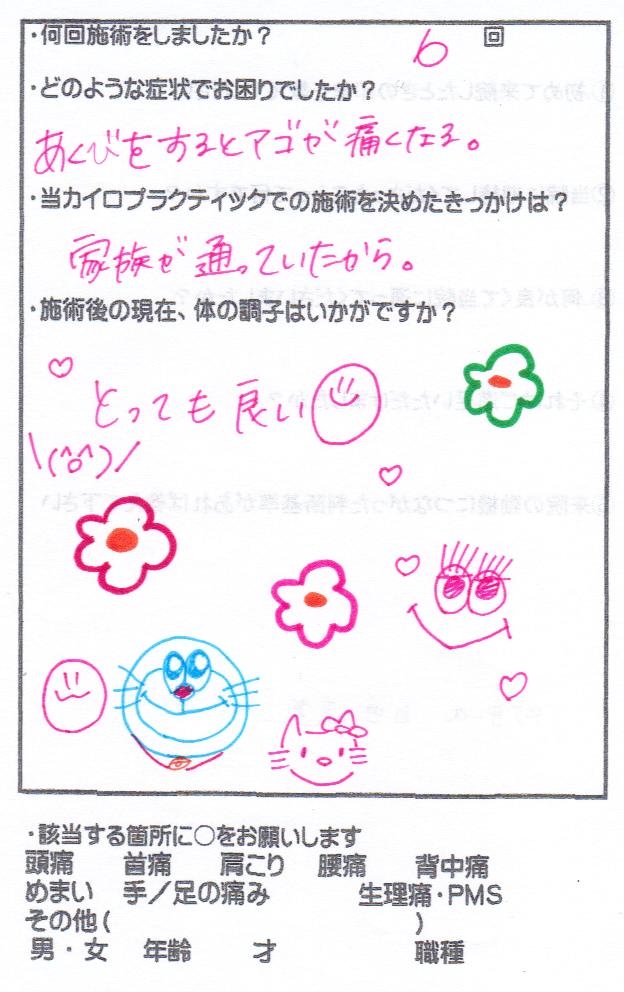 ・何回施術をしましたか？ 6 回
・どのような症状でお困りでしたか？
あくびをするとアゴが痛くなる。
・当カイロプラクティックでの施術を決めたきっかけは？
家族が通っていたから。
・施術後の現在、体の調子はいかがですか？
とっても良い
\(^o^)/
・該当する箇所に○をお願いします
頭痛 首痛 肩こり 腰痛 背中痛
めまい 手／足の痛み 生理痛・PMS
その他( )
男・女 年齢 才 職種